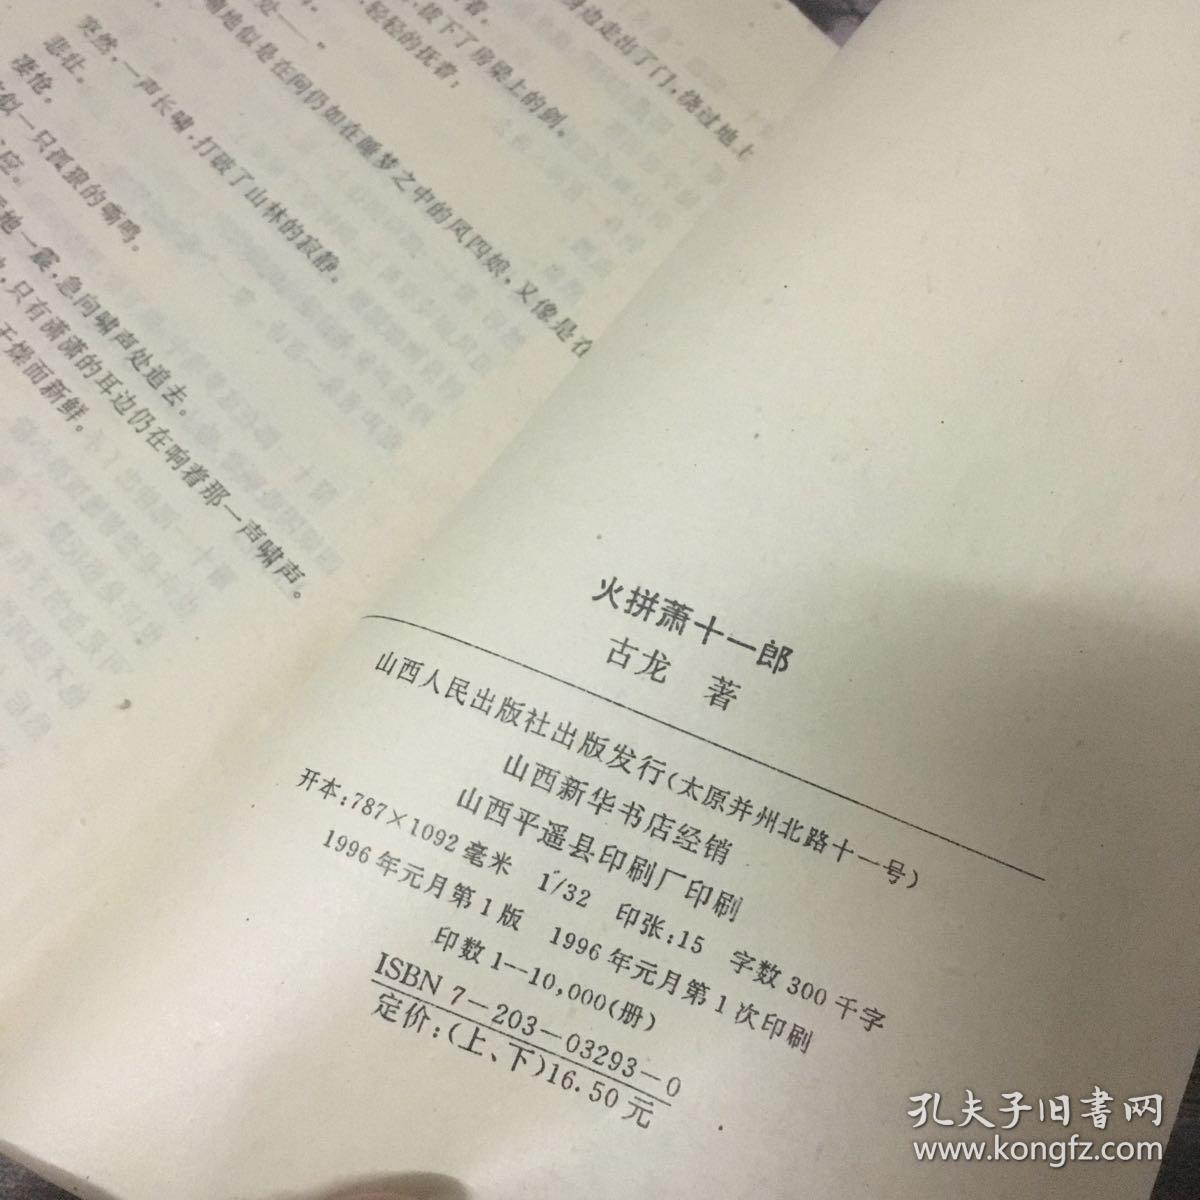 身边走出了门，绕过地上
，拔下了房梁上的剑。
，轻轻的抚着；
喃地似是在问仍如在睡梦之中的风四娘，又像是在
突然，一声长啸，打破了山林的寂静。
悲壮。
凄怆。
似一只孤狼的嘶鸣。
地一震，急向啸声处追去。
，只有潇潇的耳边仍在响着那一声啸声。
干燥而新鲜。
火拼萧十一郎
古龙 著
山西人民出版社出版发行（太原并州北路十一号）
山西新华书店经销
山西平遥县印刷厂印刷
开本：787×1092毫米 1/32 印张：15 字数300千字
1996年元月第1版 1996年元月第1次印刷
印数1—10,000（册）
ISBN 7—203—03293—0
定价：（上、下）16.50元
孔夫子旧书网
www.kongfz.com